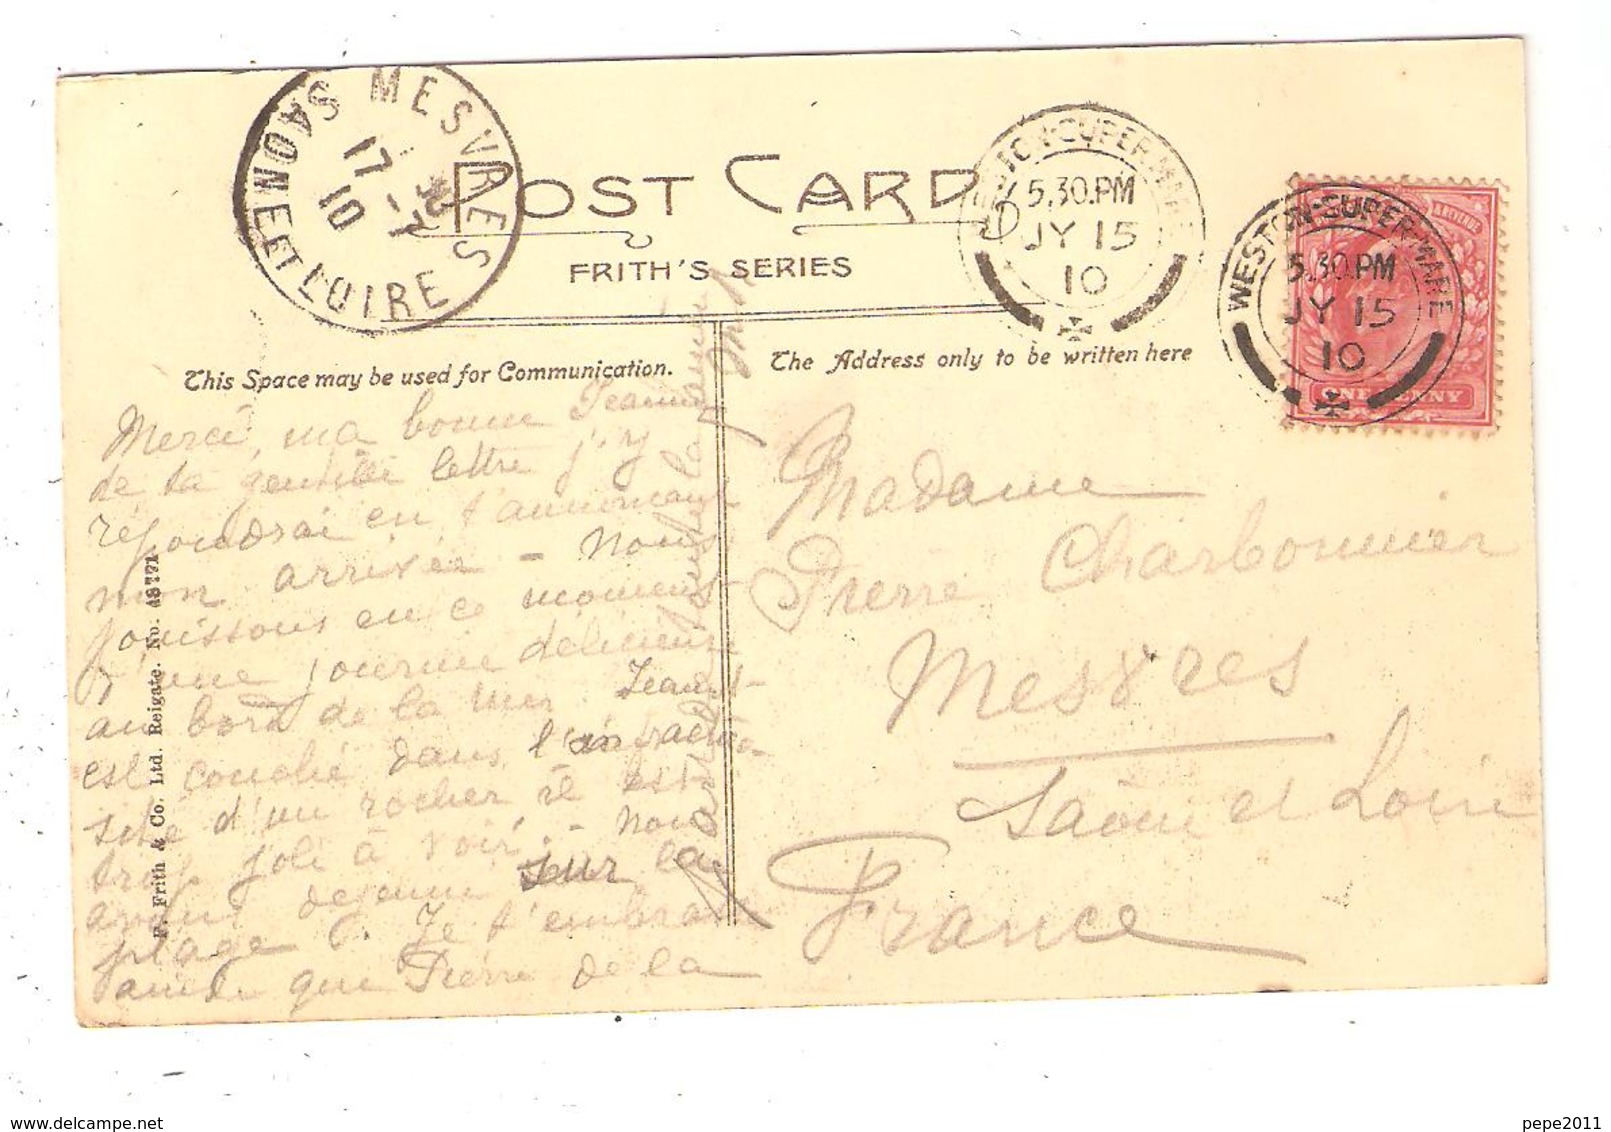 MESVRES
SAONE ET LOIRE
17 - 7
10
POST CARD
FRITH'S SERIES
WESTON-SUPER-MARE
5.30.PM
JY 15
10
WESTON-SUPER-MARE
5.30.PM
JY 15
10
& REVENUE
ONE PENNY
This Space may be used for Communication.
The Address only to be written here
Merci, ma bonne Jeanne
de ta gentille lettre j'y
répondrai en t'annonçant
mon arrivée - Nous
jouissons en ce moment
d'une journée délicieuse
au bord de la mer Jean
est couché dans l'
d'un rocher il est
trop joli à voir. - Nous
avons dejeuné sur la
plage. Je t'embrasse
ainsi que Pierre de la
Madame
Pierre Charbonnier
Mesvres
Saône et Loire
France
F. Frith & Co. Ltd. Reigate. No. 48771
pepe2011
www.delcampe.net